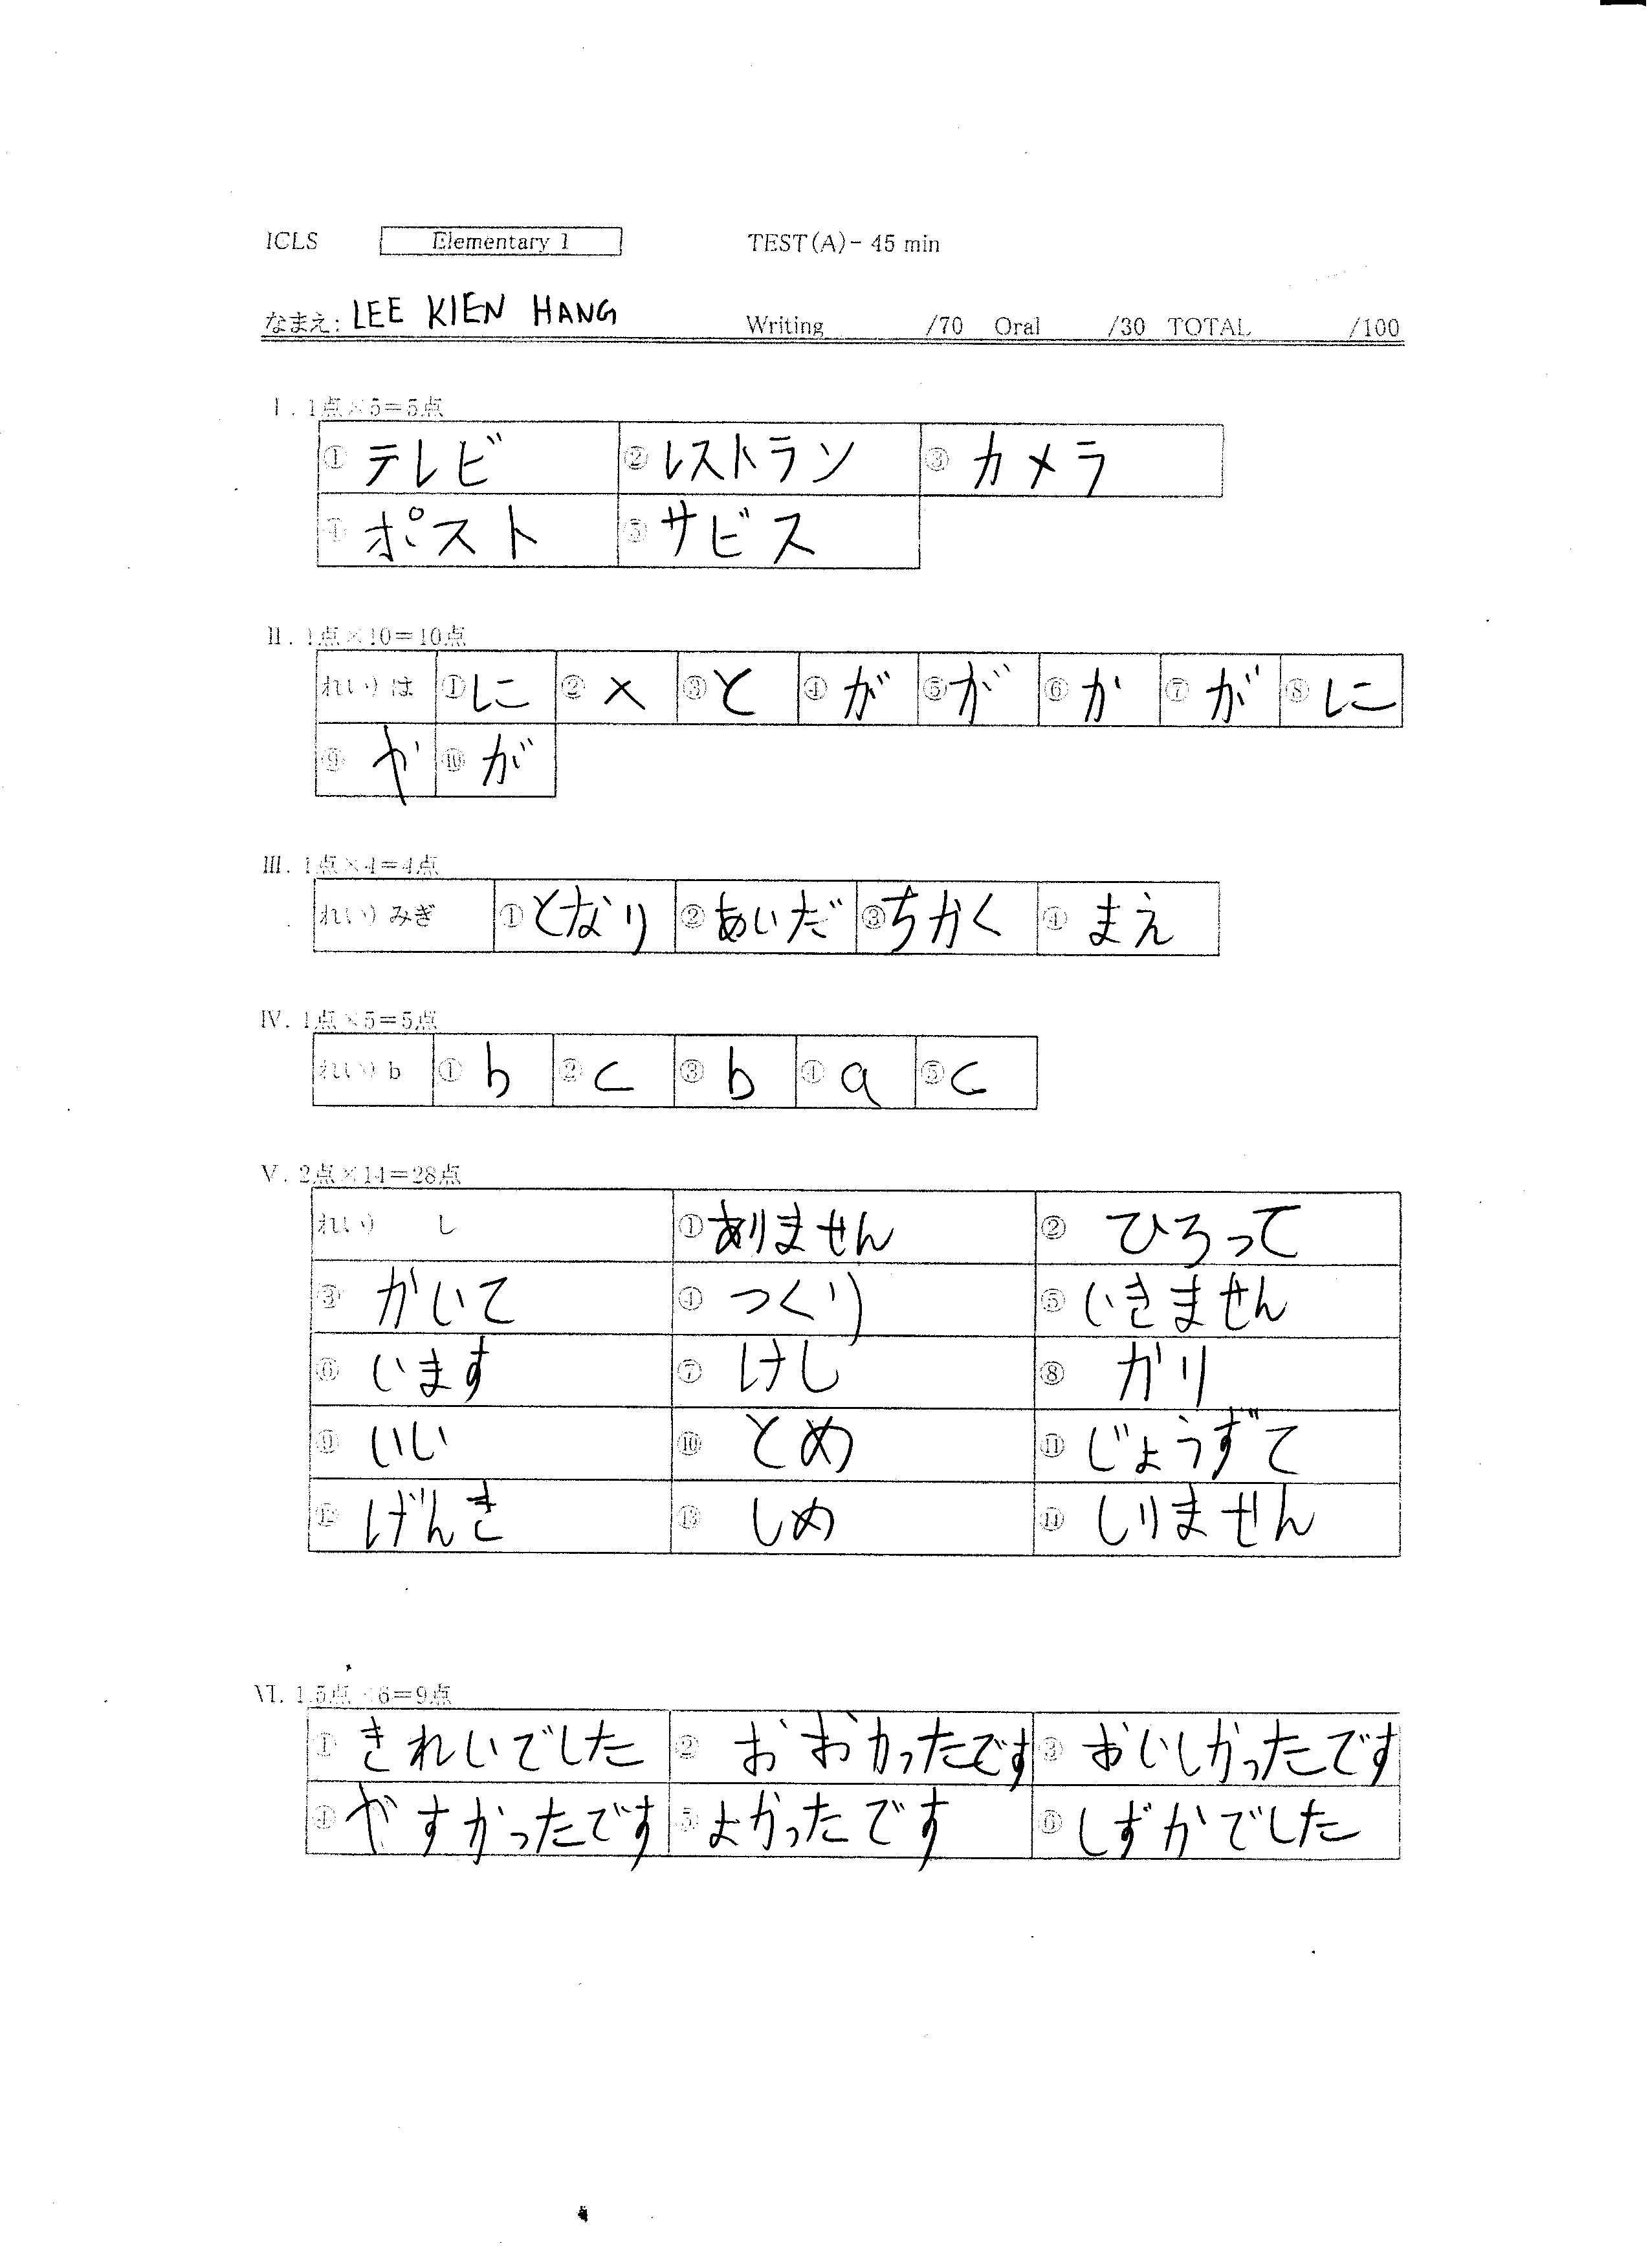 ICLS Elementary 1 TEST(A)- 45 min
なまえ: LEE KIEN HANG Writing /70 Oral /30 TOTAL /100
I. 1点×5=5点
① テレビ ② レストラン ③ カメラ
④ ポスト ⑤ サビス
II. 1点×10=10点
れい) は ① に ② × ③ と ④ が ⑤ が ⑥ か ⑦ が ⑧ に
⑨ や ⑩ が
III. 1点×4=4点
れい) みぎ ① となり ② あいだ ③ ちかく ④ まえ
IV. 1点×5=5点
れい) b ① b ② c ③ b ④ a ⑤ c
V. 2点×14=28点
れい) し ① ありません ② ひろって
③ かいて ④ つくり ⑤ いきません
⑥ います ⑦ けし ⑧ かり
⑨ いい ⑩ とめ ⑪ じょうずて
⑫ げんき ⑬ しめ ⑭ しりません
VI. 1.5点×6=9点
① きれいでした ② おおかったです ③ おいしかったです
④ やすかったです ⑤ よかったです ⑥ しずかでした